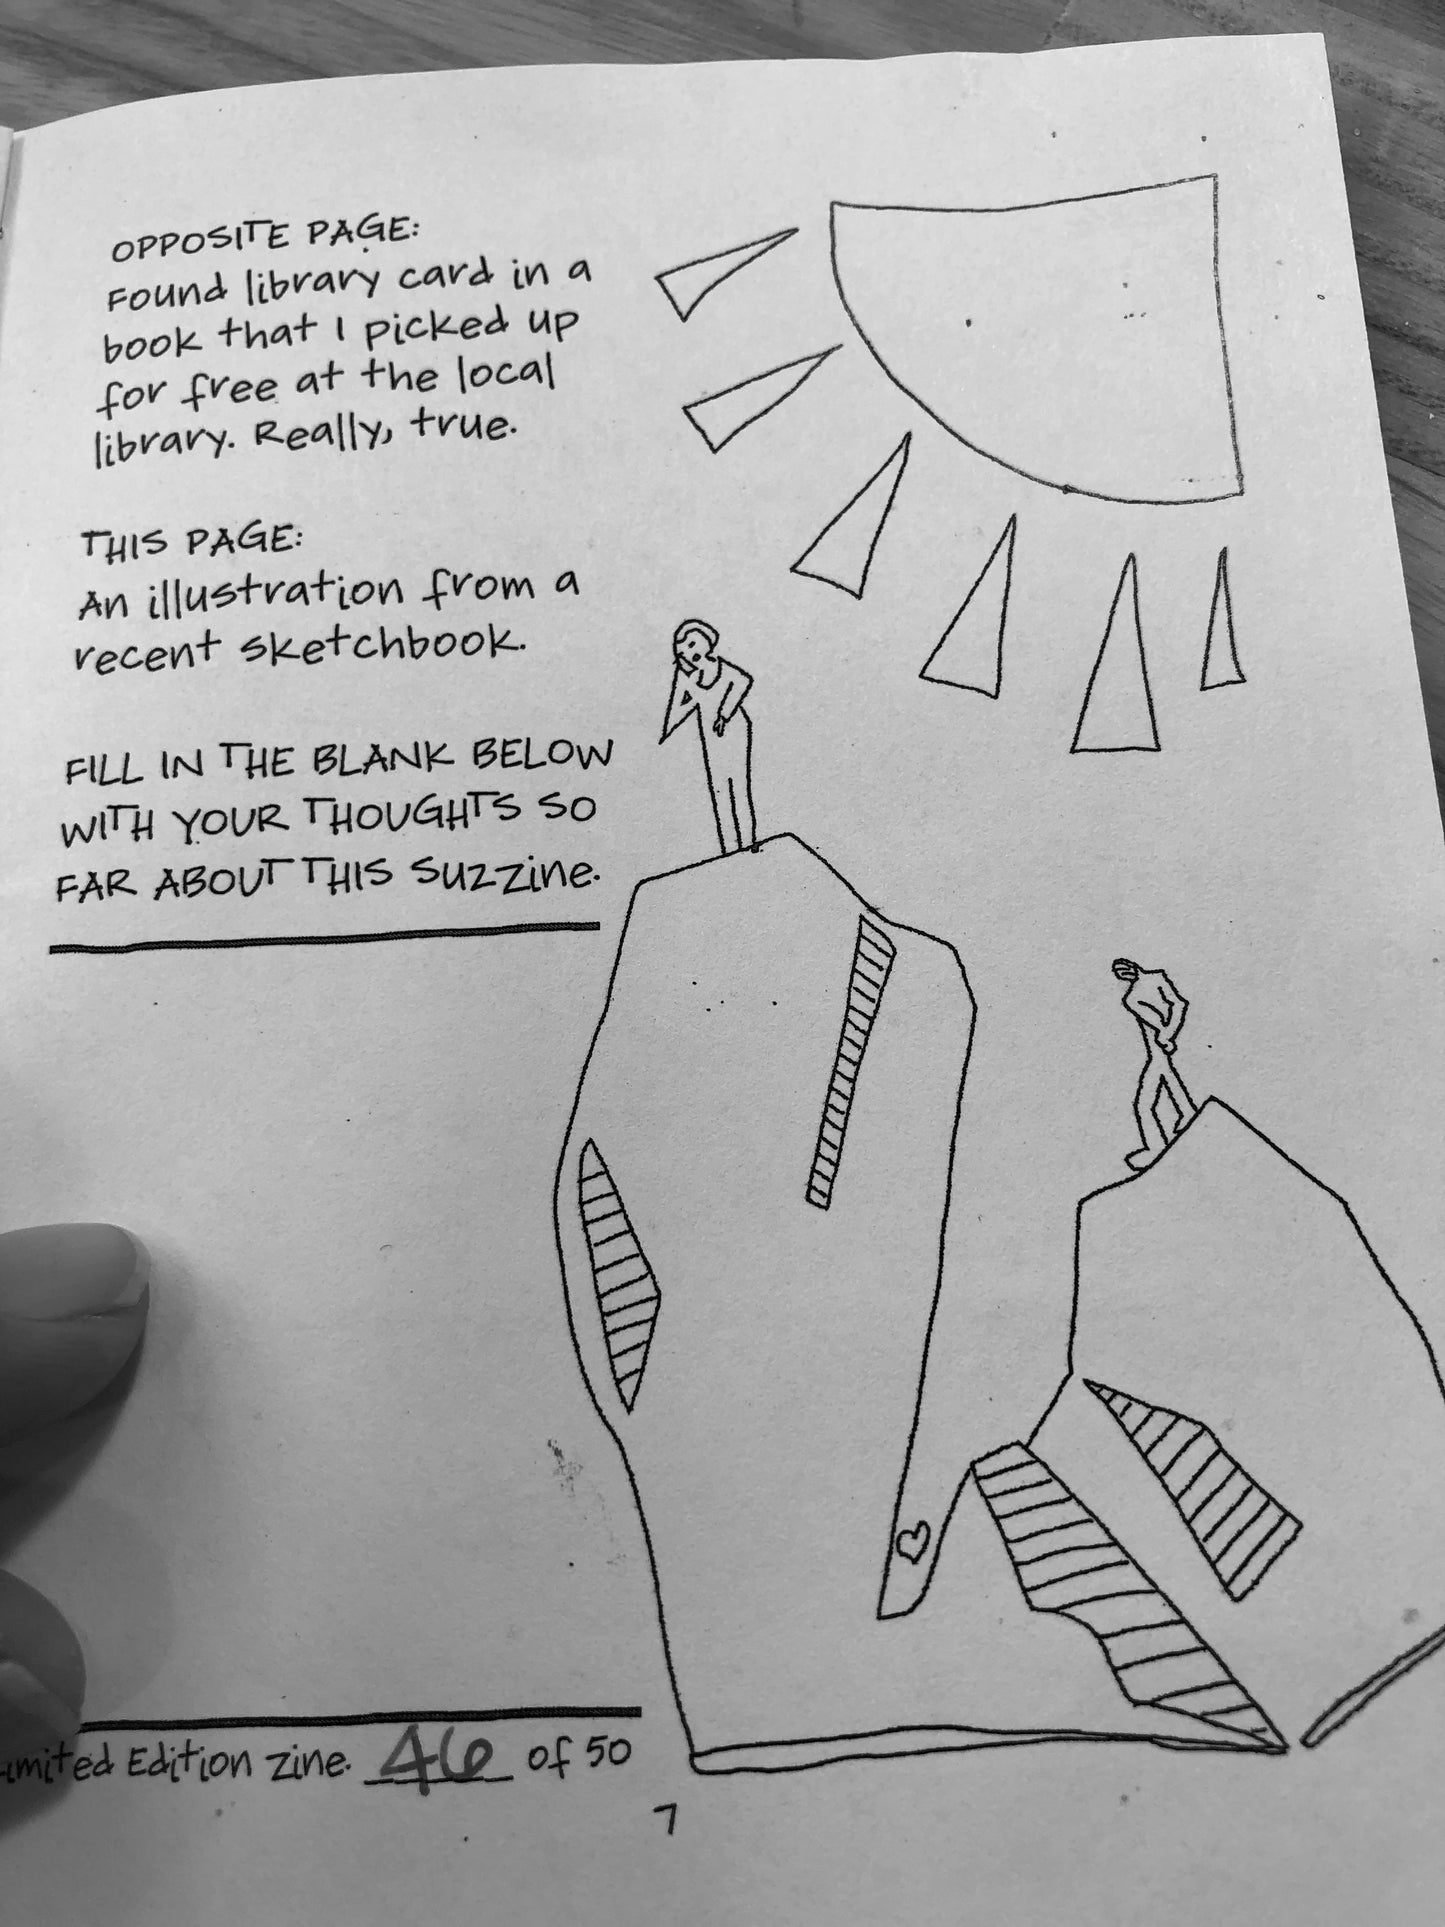 OPPOSITE PAGE:
Found library card in a
book that I picked up
for free at the local
library. Really, true.
THIS PAGE:
An illustration from a
recent sketchbook.
FILL IN THE BLANK BELOW
WITH YOUR THOUGHTS SO
FAR ABOUT THIS SUZZine.
Limited Edition zine. 46 of 50
7